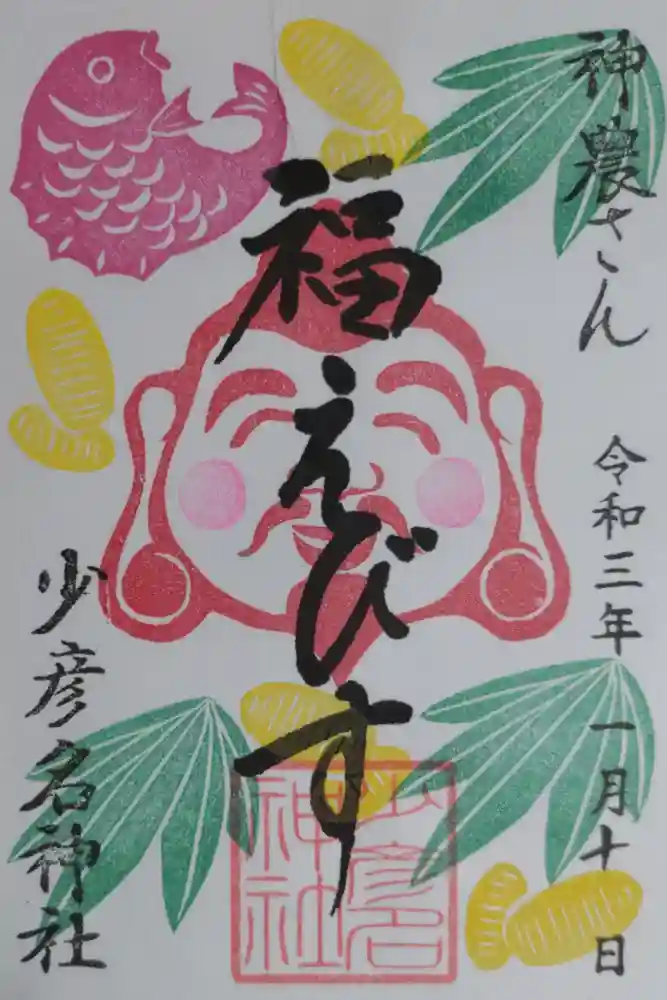 神農さん
令和三年 一月十日
福えびす
少彦名神社
少彦名
神社